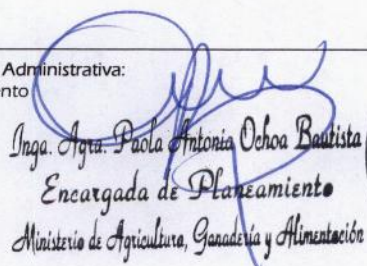 Administrativa:
ento
Inga. Agra. Paola Antonia Ochoa Bautista
Encargada de Planeamiento
Ministerio de Agricultura, Ganadería y Alimentación